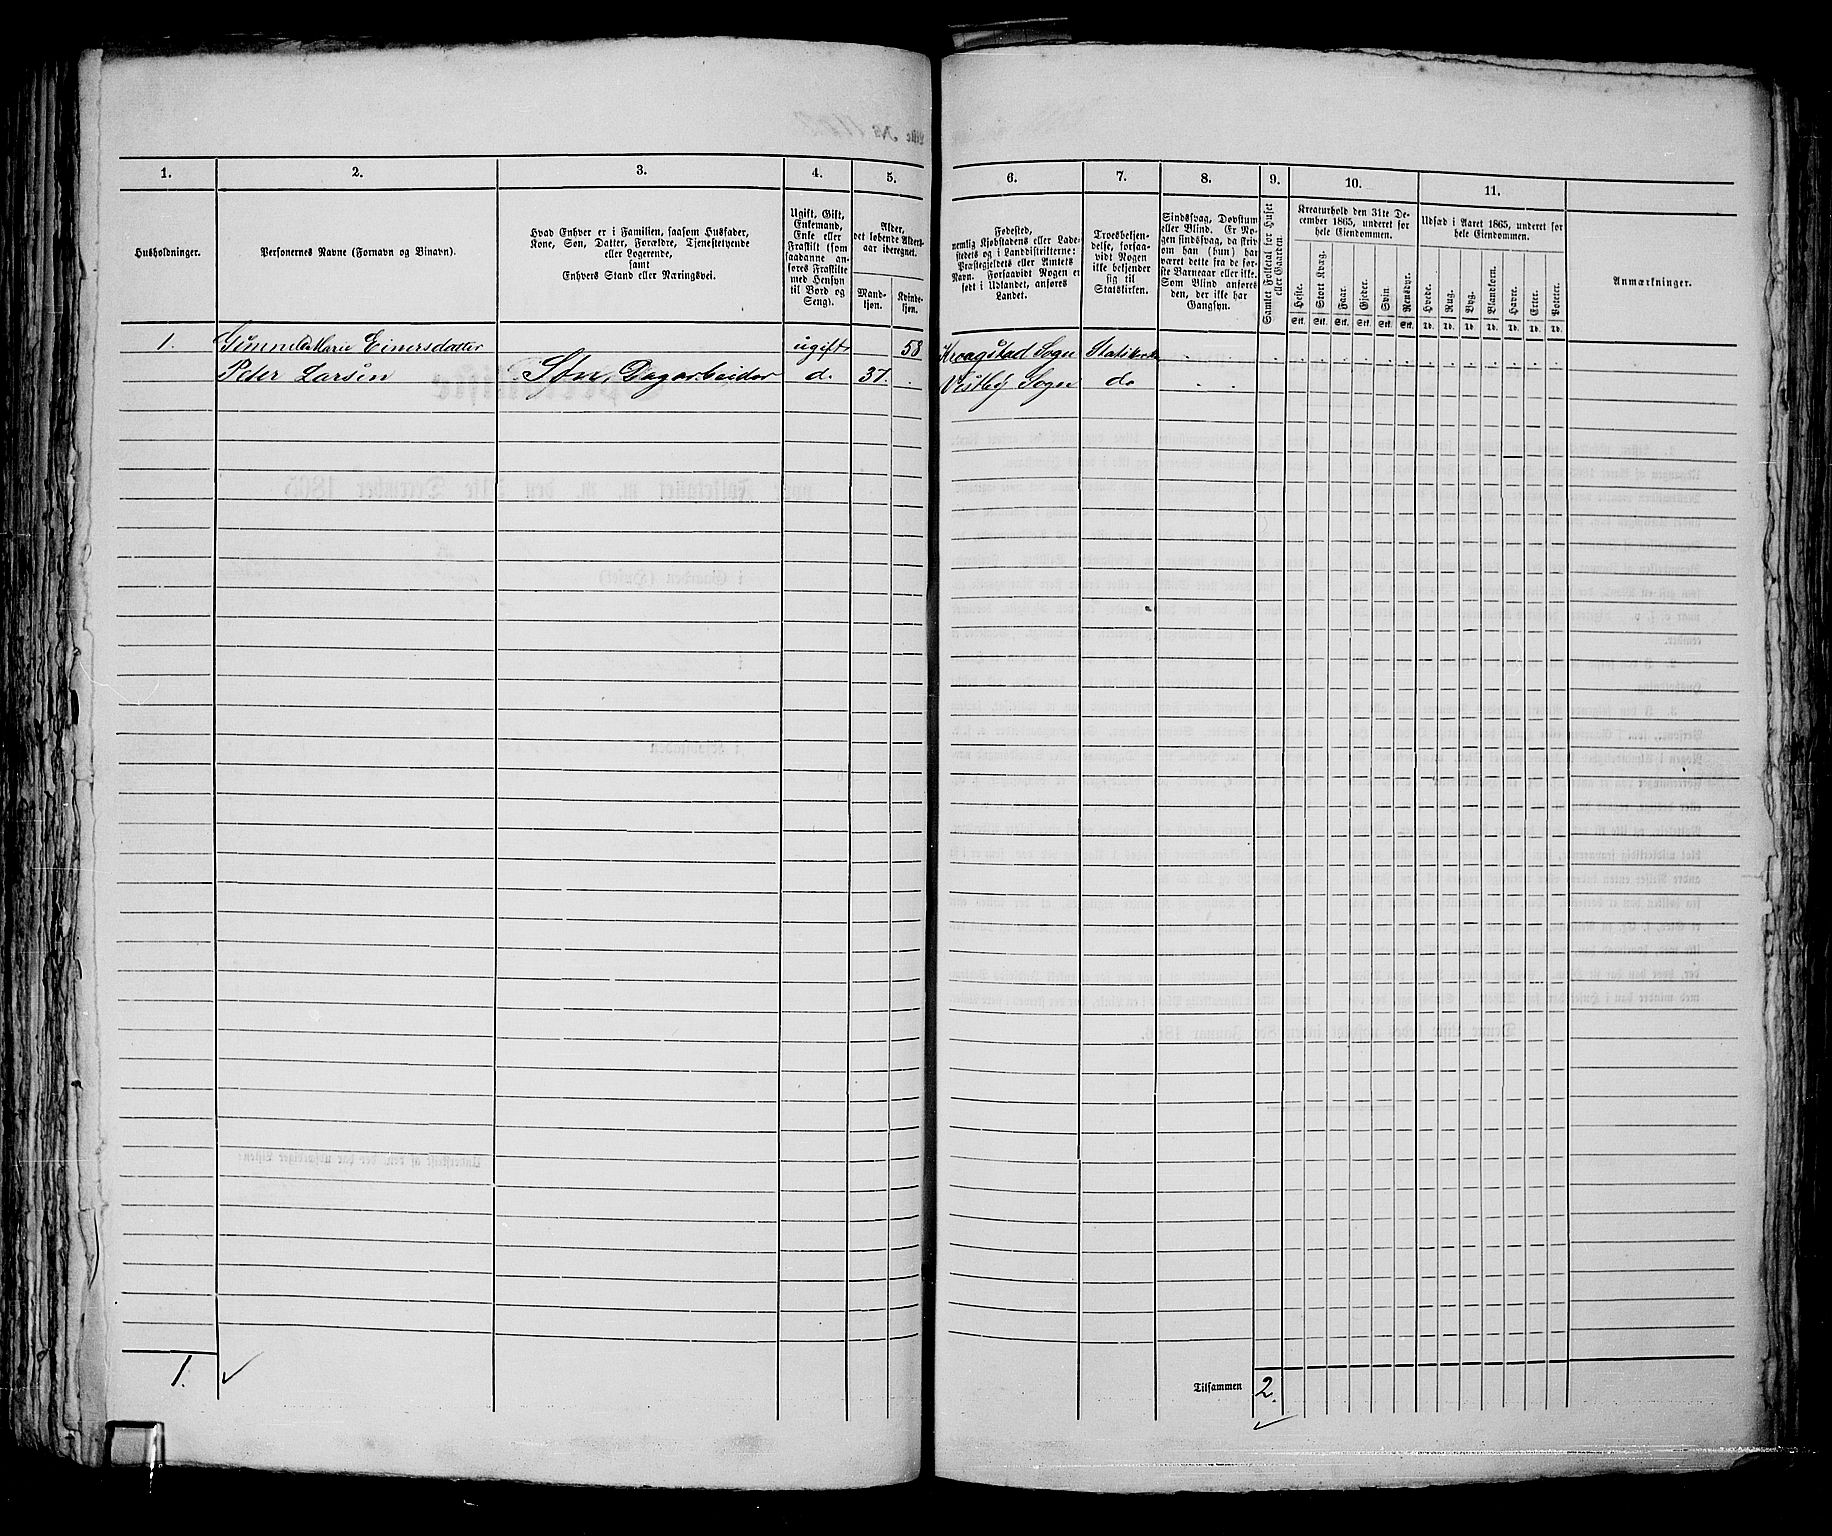 1. 2. 3. 4. 5. 6. 7. 8. 9. 10. 11.
Husholdninger.
Personernes Navne (Fornavn og Binavn).
Hvad Enhver er i Familien, saasom Husfader,
Kone, Søn, Datter, Forældre, Tjenestetyende
eller Logerende,
samt
Enhvers Stand eller Næringsvei.
Ugift, Gift,
Enkemand,
Enke eller
Fraskilt (som
saadanne an-
føres Fraskilte
med Hensyn
til Bord og
Seng).
Alder,
det løbende Alders-
aar iberegnet.
Mand-
kjøn.
Kvinde-
kjøn.
Fødested,
nemlig Kjøbstadens eller Lade-
stedets og i Landdistrikterne:
Præstegjeldets eller Amtets
Navn. Forsaavidt Nogen er
født i Udlandet, anføres
Landet.
Troesbekjen-
delse, forsaa-
vidt Nogen
ikke bekjender
sig til
Statskirken.
Sindssvag, Døvstum
eller Blind. Er No-
gen sindssvag, da skri-
ves om han (hun) har
været dette fra de før-
ste Barneaar eller ikke.
Som Blind anføres
den, der ikke har
Gangsyn.
Samlet Folketal for Huset
eller Gaarden.
Kreaturhold den 31te De-
cember 1865, underet for
hele Eiendommen.
Heste. Stort Kvæg. Faar. Gjeder. Svin. Rensdyr.
Stk. Stk. Stk. Stk. Stk. Stk.
Udsæd i Aaret 1865, underet for
hele Eiendommen.
Hvede. Rug. Byg. Blandkorn. Havre. Erter. Poteter.
Td. Td. Td. Td. Td. Td. Td.
Anmærkninger.
1. Marie Einersdatter ugift 58 Kraagstad Sogn Statskirke
Peter Larsen Søn, Dagarbeider do 31. Vestby Sogn do
1.
Tilsammen 2.